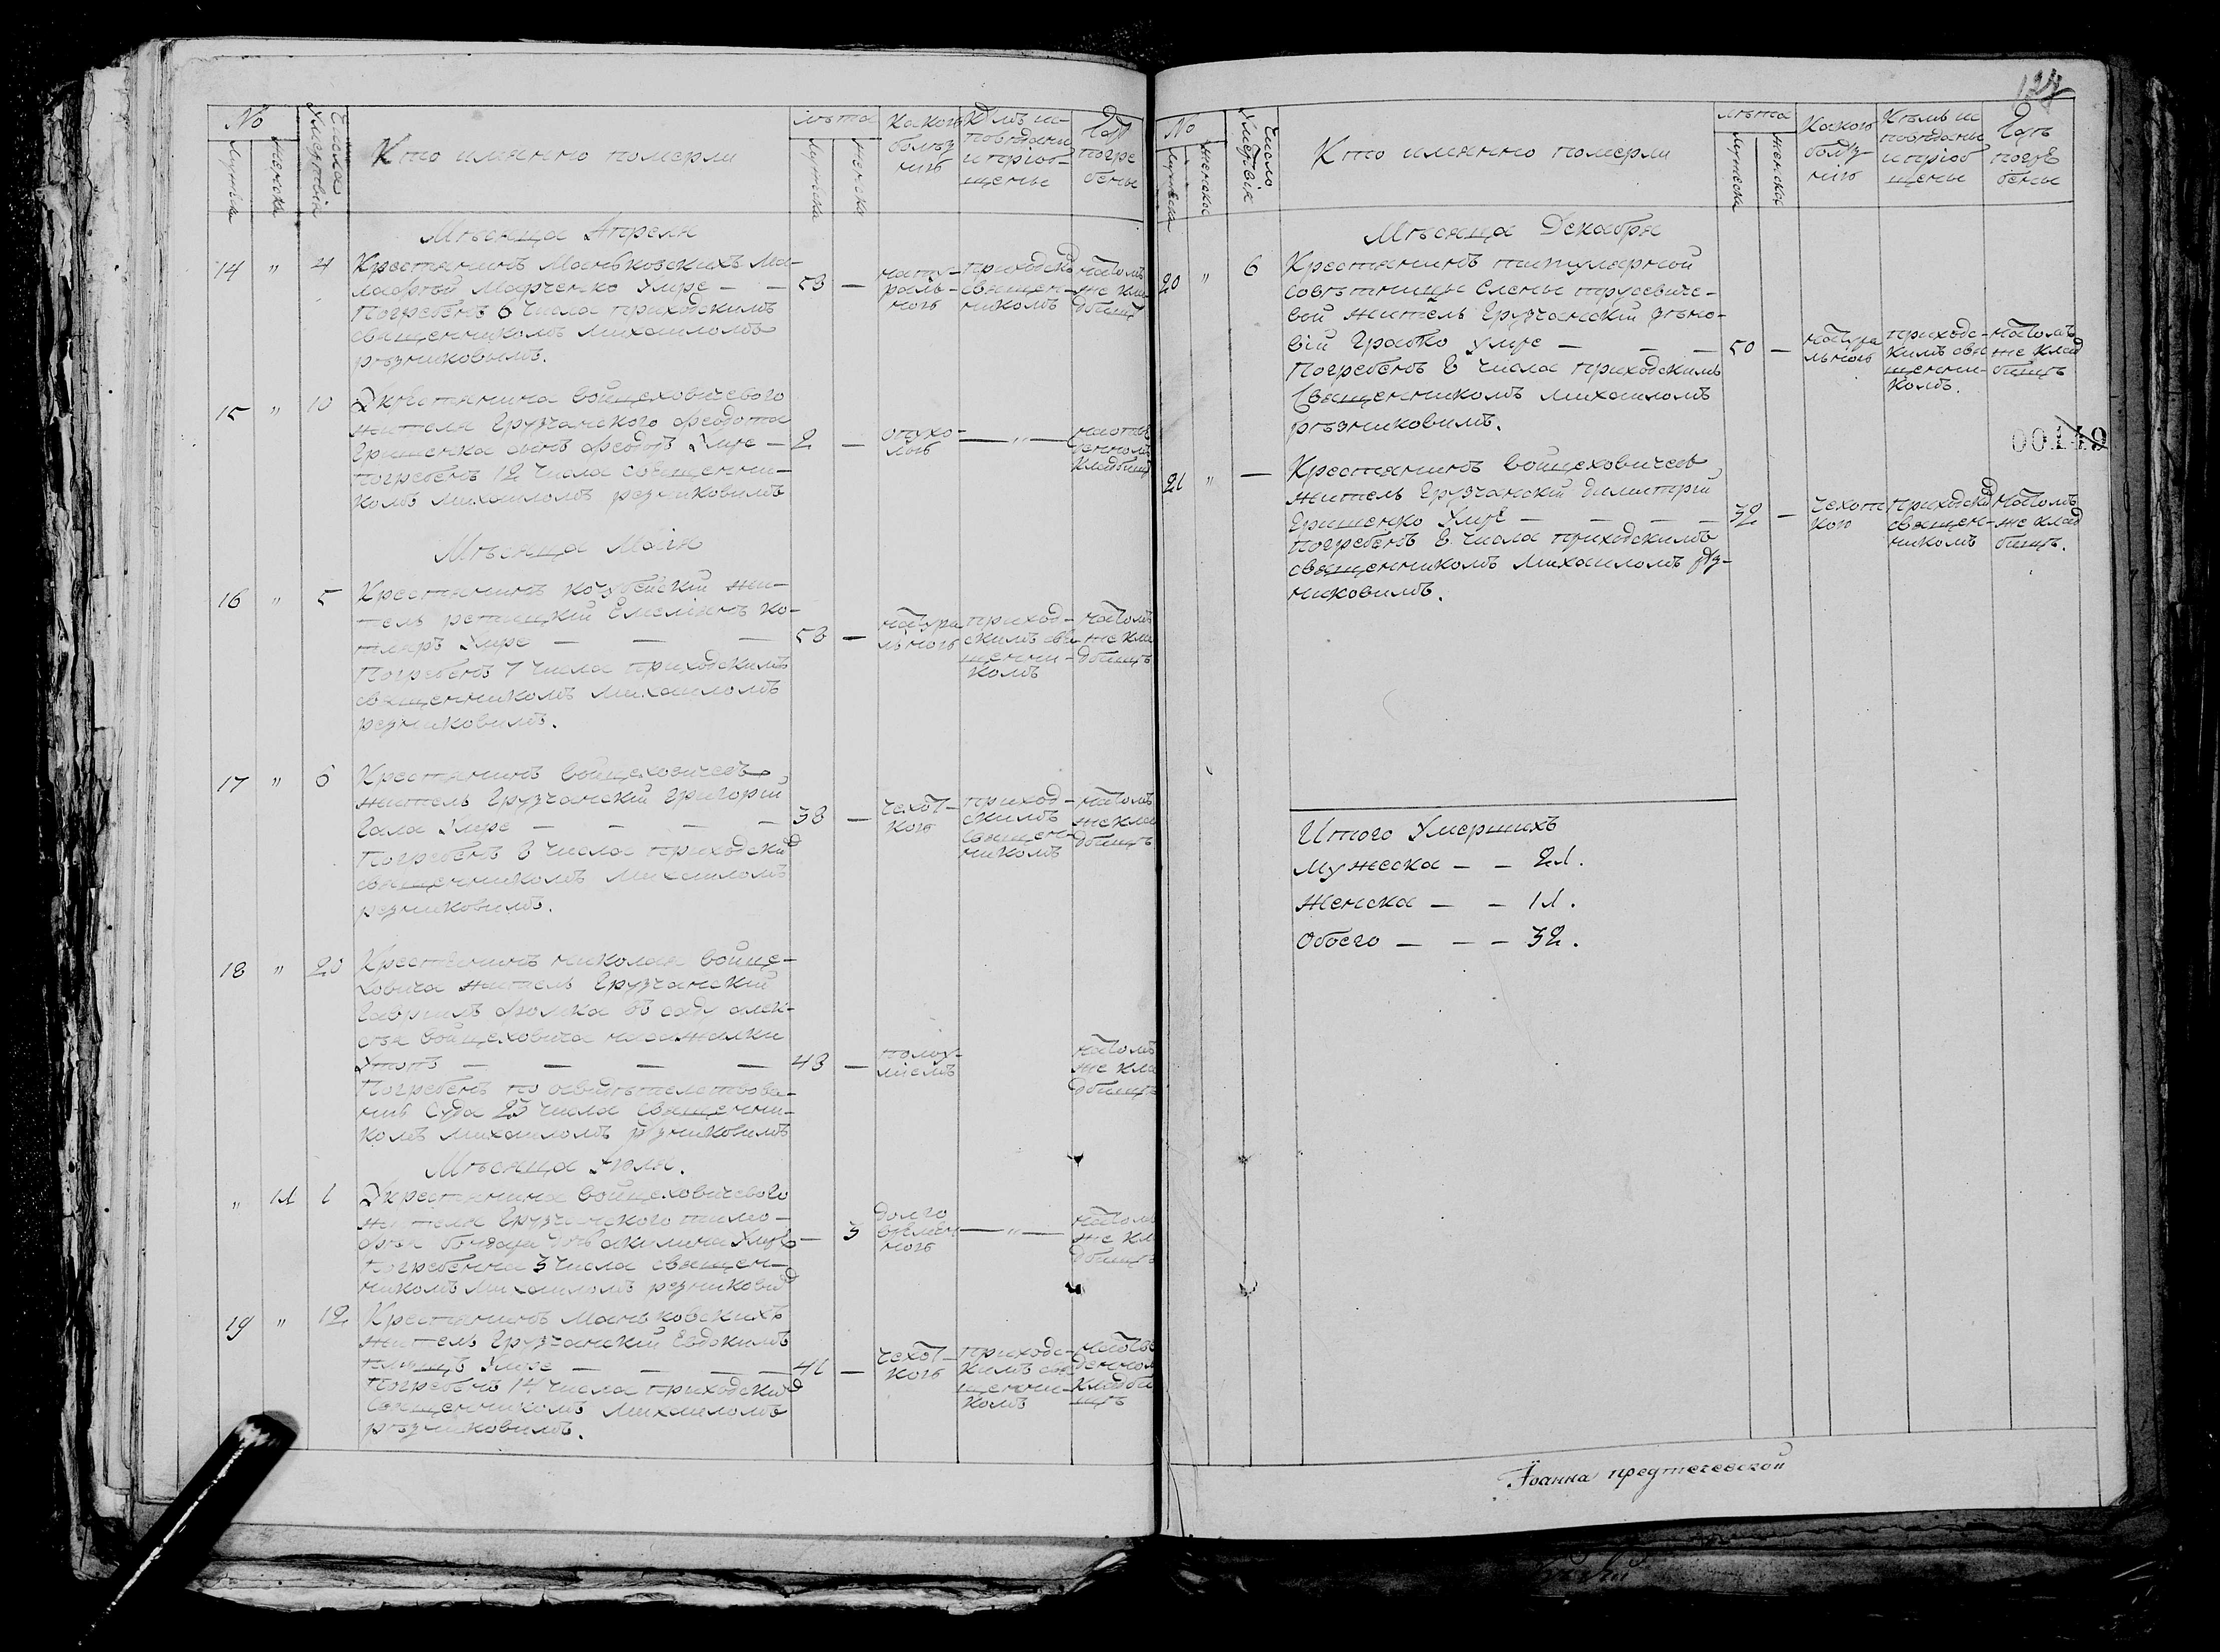 No
Мужеска
Женска
Числа Умертвія
Кто имянно померли
лѣта
Мужеска
Женска
Какою
болѣз
нію
Кѣмъ ис
повѣданы
и пріоб
щены
Гдѣ
погре
бены
Мѣсяца Апреля
14 " 4 Крестянинъ Маньковскихъ
Марченко Умре — — 58 —
Погребенъ 6 числа приходскимъ
священникомъ Михаиломъ
рѣзниковымъ.
нату-
раль-
ною
приходски
священ-
никомъ
натомъ
же кла
дбищѣ
15 " 10 Укрестянина войцеховичевого
жителя Грузчанского Федота
Грищенка сынъ Федотъ Умре — 2 —
погребенъ 12 числа священни-
комъ михаиломъ резниковимъ
опухо-
лью
— " —
кладбищѣ
Мѣсяца Маія
16 " 5 Крестянинъ кочубейскій жи-
тель Емеліянъ ко-
тляръ Умре — — — 58 —
Погребенъ 7 числа приходскимъ
священникомъ михаиломъ
резниковимъ.
натура
льною
приход-
скимъ свя
щенни-
комъ
натомъ
же кла
дбищѣ
17 " 6 Крестянинъ войцеховичевъ
житель Грузчанскій Григорій
Гала Умре — — — — 38 —
Погребенъ 8 числа приходски
священникомъ михаиломъ
резниковимъ.
чехот-
кою
приход-
скимъ
священ-
никомъ
натомъ
же кла
дбищѣ
18 " 20 Крестянинъ николая войце-
ховича житель Грузчанскій
Гавріилъ въ саду алек-
сѣя войцеховича
— — — — 48 —
Погребенъ по освидѣтелствова-
нію Суда 23 числа священни-
комъ михаиломъ рѣзниковимъ
натомъ
же кла
дбищѣ
Мѣсяца Іюля.
" 11 1 Укрестянина войцеховичевого
жителя Грузчанского тимо-
фѣя дочь акилина Умре — 3
Погребенна 3 числа священ-
никомъ михаиломъ резникови
долго
времен
ною
— " —
натомъ
же кла
дбищѣ
19 " 12 Крестянинъ Маньковскихъ
житель Грузчанскій Евдокимъ
Умре — — — — 41 —
Погребенъ 14 числа приходски
священникомъ михаиломъ
рѣзниковимъ.
чехот-
кою
приходс-
кимъ свя
щенни-
комъ
кладби
щѣ
124
No
Мужеска
Женска
Число Умертвія
Кто имянно померли
лѣта
Мужеска
Женска
Какою
болѣз-
нію
Кѣмъ ис
повѣданы
и пріоб
щены
Гдѣ
погре
бены
Мѣсяца Декабря
20 " 6 Крестянинъ титулярной
совѣтницы Елены трусевиче-
вой житель Грузчанскій зѣно-
вій Грабко Умре — — — 50 —
Погребенъ 8 числа приходскимъ
Священникомъ михаиломъ
рѣзниковимъ.
натура
льною
приходс-
кимъ свя
щенни-
комъ.
натомъ
же клад
бищѣ
00149
21 " — Крестянинъ войцеховичевъ
житель Грузчанскій димитрій
Грищенко Умре — — — — 32 —
Погребенъ 8 числа приходскимъ
священникомъ михаиломъ рѣз-
никовимъ.
чехот
кою
приходски
священ-
никомъ
натомъ
же клад
бищѣ.
Итого Умершихъ
Мужеска — — 21.
Женска — — 11.
Обоего — — — 32.
Іоанна предтечевской